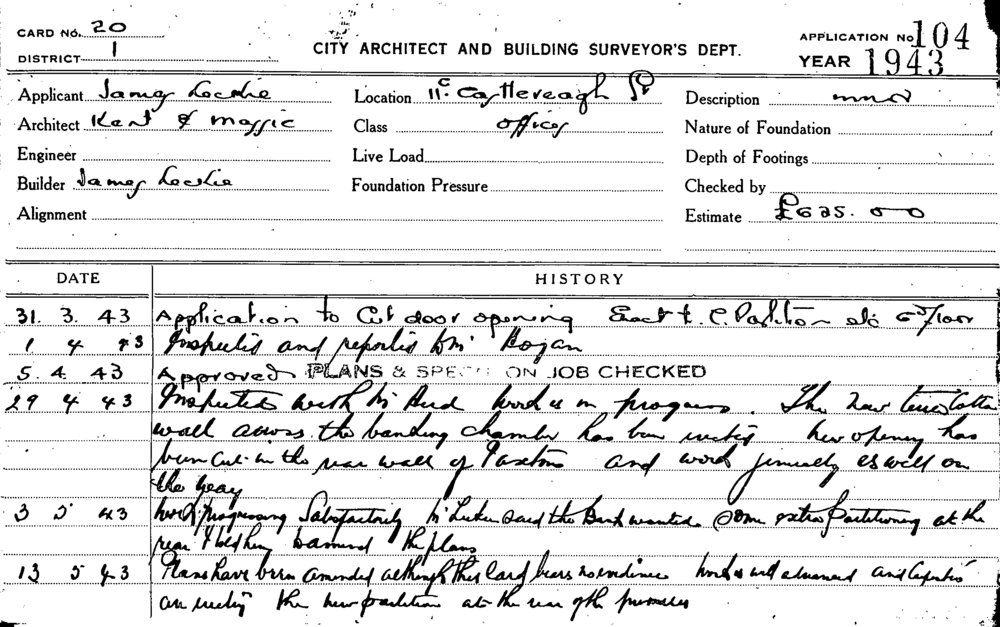 CARD No. 20
DISTRICT 1
CITY ARCHITECT AND BUILDING SURVEYOR'S DEPT.
APPLICATION No. 104
YEAR 1943
Applicant James Leckie
Location 115 Castlereagh St
Description
Architect Kent & Massie
Class offices
Nature of Foundation
Engineer
Live Load
Depth of Footings
Builder James Leckie
Foundation Pressure
Checked by
Alignment
Estimate £625.00
DATE HISTORY
31. 3. 43 Application to Cut door opening Erect t. C. Partition etc 6th floor
1 4 43 Inspected and reported to Mr Hogan
5. 4. 43 Approved PLANS & SPEC ON JOB CHECKED
29 4 43 Inspected with Mr Bird work is in progress. The new terra Cotta
wall across the banking chamber has been erected new opening has
been cut in the rear wall of and work generally is well on
the way
3 5 43 Work progressing Satisfactorily Mr said the Bank wanted some extra partitioning at the
rear I told him to amend the plans
13 5 43 Plans have been amended although this Card bears no evidence Work is well advanced and Carpenters
are erecting the new partition at the rear of the premises